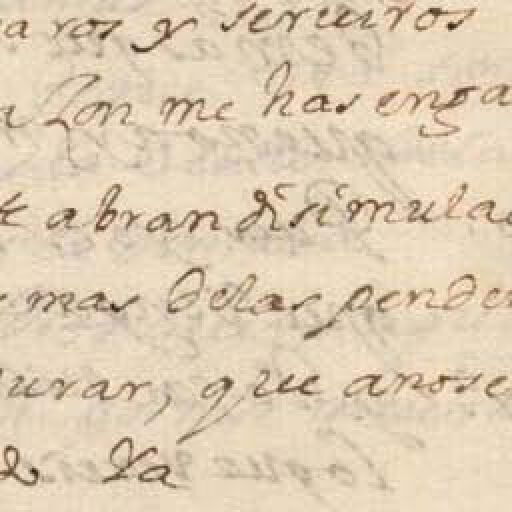 aros y seruiros
on me has enga
abran disimulad
mas delas penden
urar, que anose
Ya